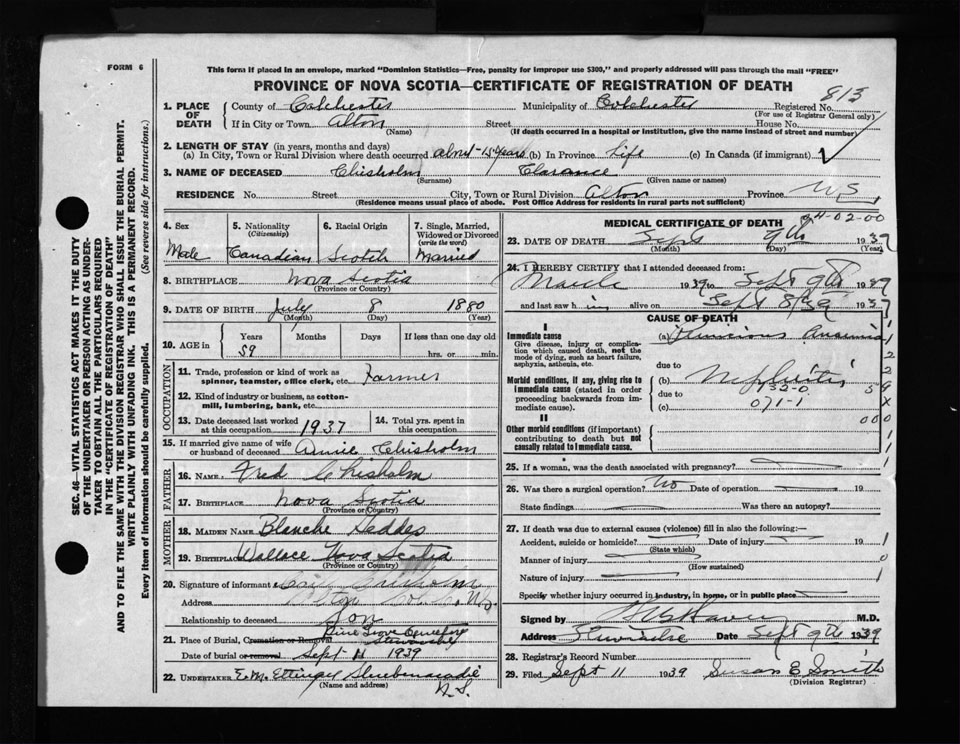 FORM 6
This form if placed in an envelope, marked "Dominion Statistics—Free, penalty for improper use $300," and properly addressed will pass through the mail "FREE"
PROVINCE OF NOVA SCOTIA—CERTIFICATE OF REGISTRATION OF DEATH
813
1. PLACE OF DEATH County of Colchester Municipality of Colchester Registered No.
(For use of Registrar General only)
If in City or Town Alton Street House No.
(Name) (If death occurred in a hospital or institution, give the name instead of street and number)
2. LENGTH OF STAY (in years, months and days)
(a) In City, Town or Rural Division where death occurred 15 years (b) In Province Life (c) In Canada (if immigrant)
3. NAME OF DECEASED Chisholm Clarance
(Surname) (Given name or names)
RESIDENCE No. Street City, Town or Rural Division Alton Province N.S.
(Residence means usual place of abode. Post Office Address for residents in rural parts not sufficient)
SEC. 46—VITAL STATISTICS ACT MAKES IT THE DUTY
OF THE UNDERTAKER OR PERSON ACTING AS UNDER-
TAKER TO OBTAIN ALL THE PARTICULARS REQUIRED
IN THE "CERTIFICATE OF REGISTRATION OF DEATH"
AND TO FILE THE SAME WITH THE DIVISION REGISTRAR WHO SHALL ISSUE THE BURIAL PERMIT.
WRITE PLAINLY WITH UNFADING INK. THIS IS A PERMANENT RECORD.
Every item of information should be carefully supplied. (See reverse side for instructions.)
4. Sex 5. Nationality (Citizenship) 6. Racial Origin 7. Single, Married, Widowed or Divorced (write the word)
Male Canadian Scotch Married
8. BIRTHPLACE Nova Scotia
(Province or Country)
9. DATE OF BIRTH July 8 1880
(Month) (Day) (Year)
10. AGE in Years Months Days If less than one day
59 hrs. or min.
OCCUPATION
11. Trade, profession or kind of work as spinner, teamster, office clerk, etc. Farmer
12. Kind of industry or business, as cotton-mill, lumbering, bank, etc.
13. Date deceased last worked at this occupation 1937 14. Total yrs. spent in this occupation
15. If married give name of wife or husband of deceased Annie Chisholm
FATHER
16. NAME Fred Chisholm
17. BIRTHPLACE Nova Scotia
(Province or Country)
MOTHER
18. MAIDEN NAME Blanche Geddes
19. BIRTHPLACE Wallace Nova Scotia
(Province or Country)
20. Signature of informant
Address Alton
Relationship to deceased Son
21. Place of Burial, Cremation or Removal Pine Grove Cemetery
Date of burial or removal Sept 11 1939
22. UNDERTAKER E. M. Ettinger Shubenacadie
(Name and address) N.S.
MEDICAL CERTIFICATE OF DEATH
24-02-00
23. DATE OF DEATH Sept 9th 1939
(Month) (Day) (Year)
24. I HEREBY CERTIFY that I attended deceased from:
March 1939 to Sept 9th 1939
and last saw him alive on Sept 8/39 193
CAUSE OF DEATH
I
Immediate cause
Give disease, injury or complication which caused death, not the mode of dying, such as heart failure, asphyxia, asthenia, etc.
(a) Pernicious Anaemia
due to
Morbid conditions, if any, giving rise to immediate cause (stated in order proceeding backwards from immediate cause).
(b) Nephritis
132-0
due to
(c) 071-1
II
Other morbid conditions (if important) contributing to death but not causally related to immediate cause.
25. If a woman, was the death associated with pregnancy?
26. Was there a surgical operation? No Date of operation 19
State findings Was there an autopsy?
27. If death was due to external causes (violence) fill in also the following:—
Accident, suicide or homicide? Date of injury 19
(State which)
Manner of injury
(How sustained)
Nature of injury
Specify whether injury occurred in industry, in home, or in public place
Signed by M.D.
Address Stewiacke Date Sept 9th 1939
28. Registrar's Record Number
29. Filed Sept 11 1939 Susan E Smith
(Division Registrar)